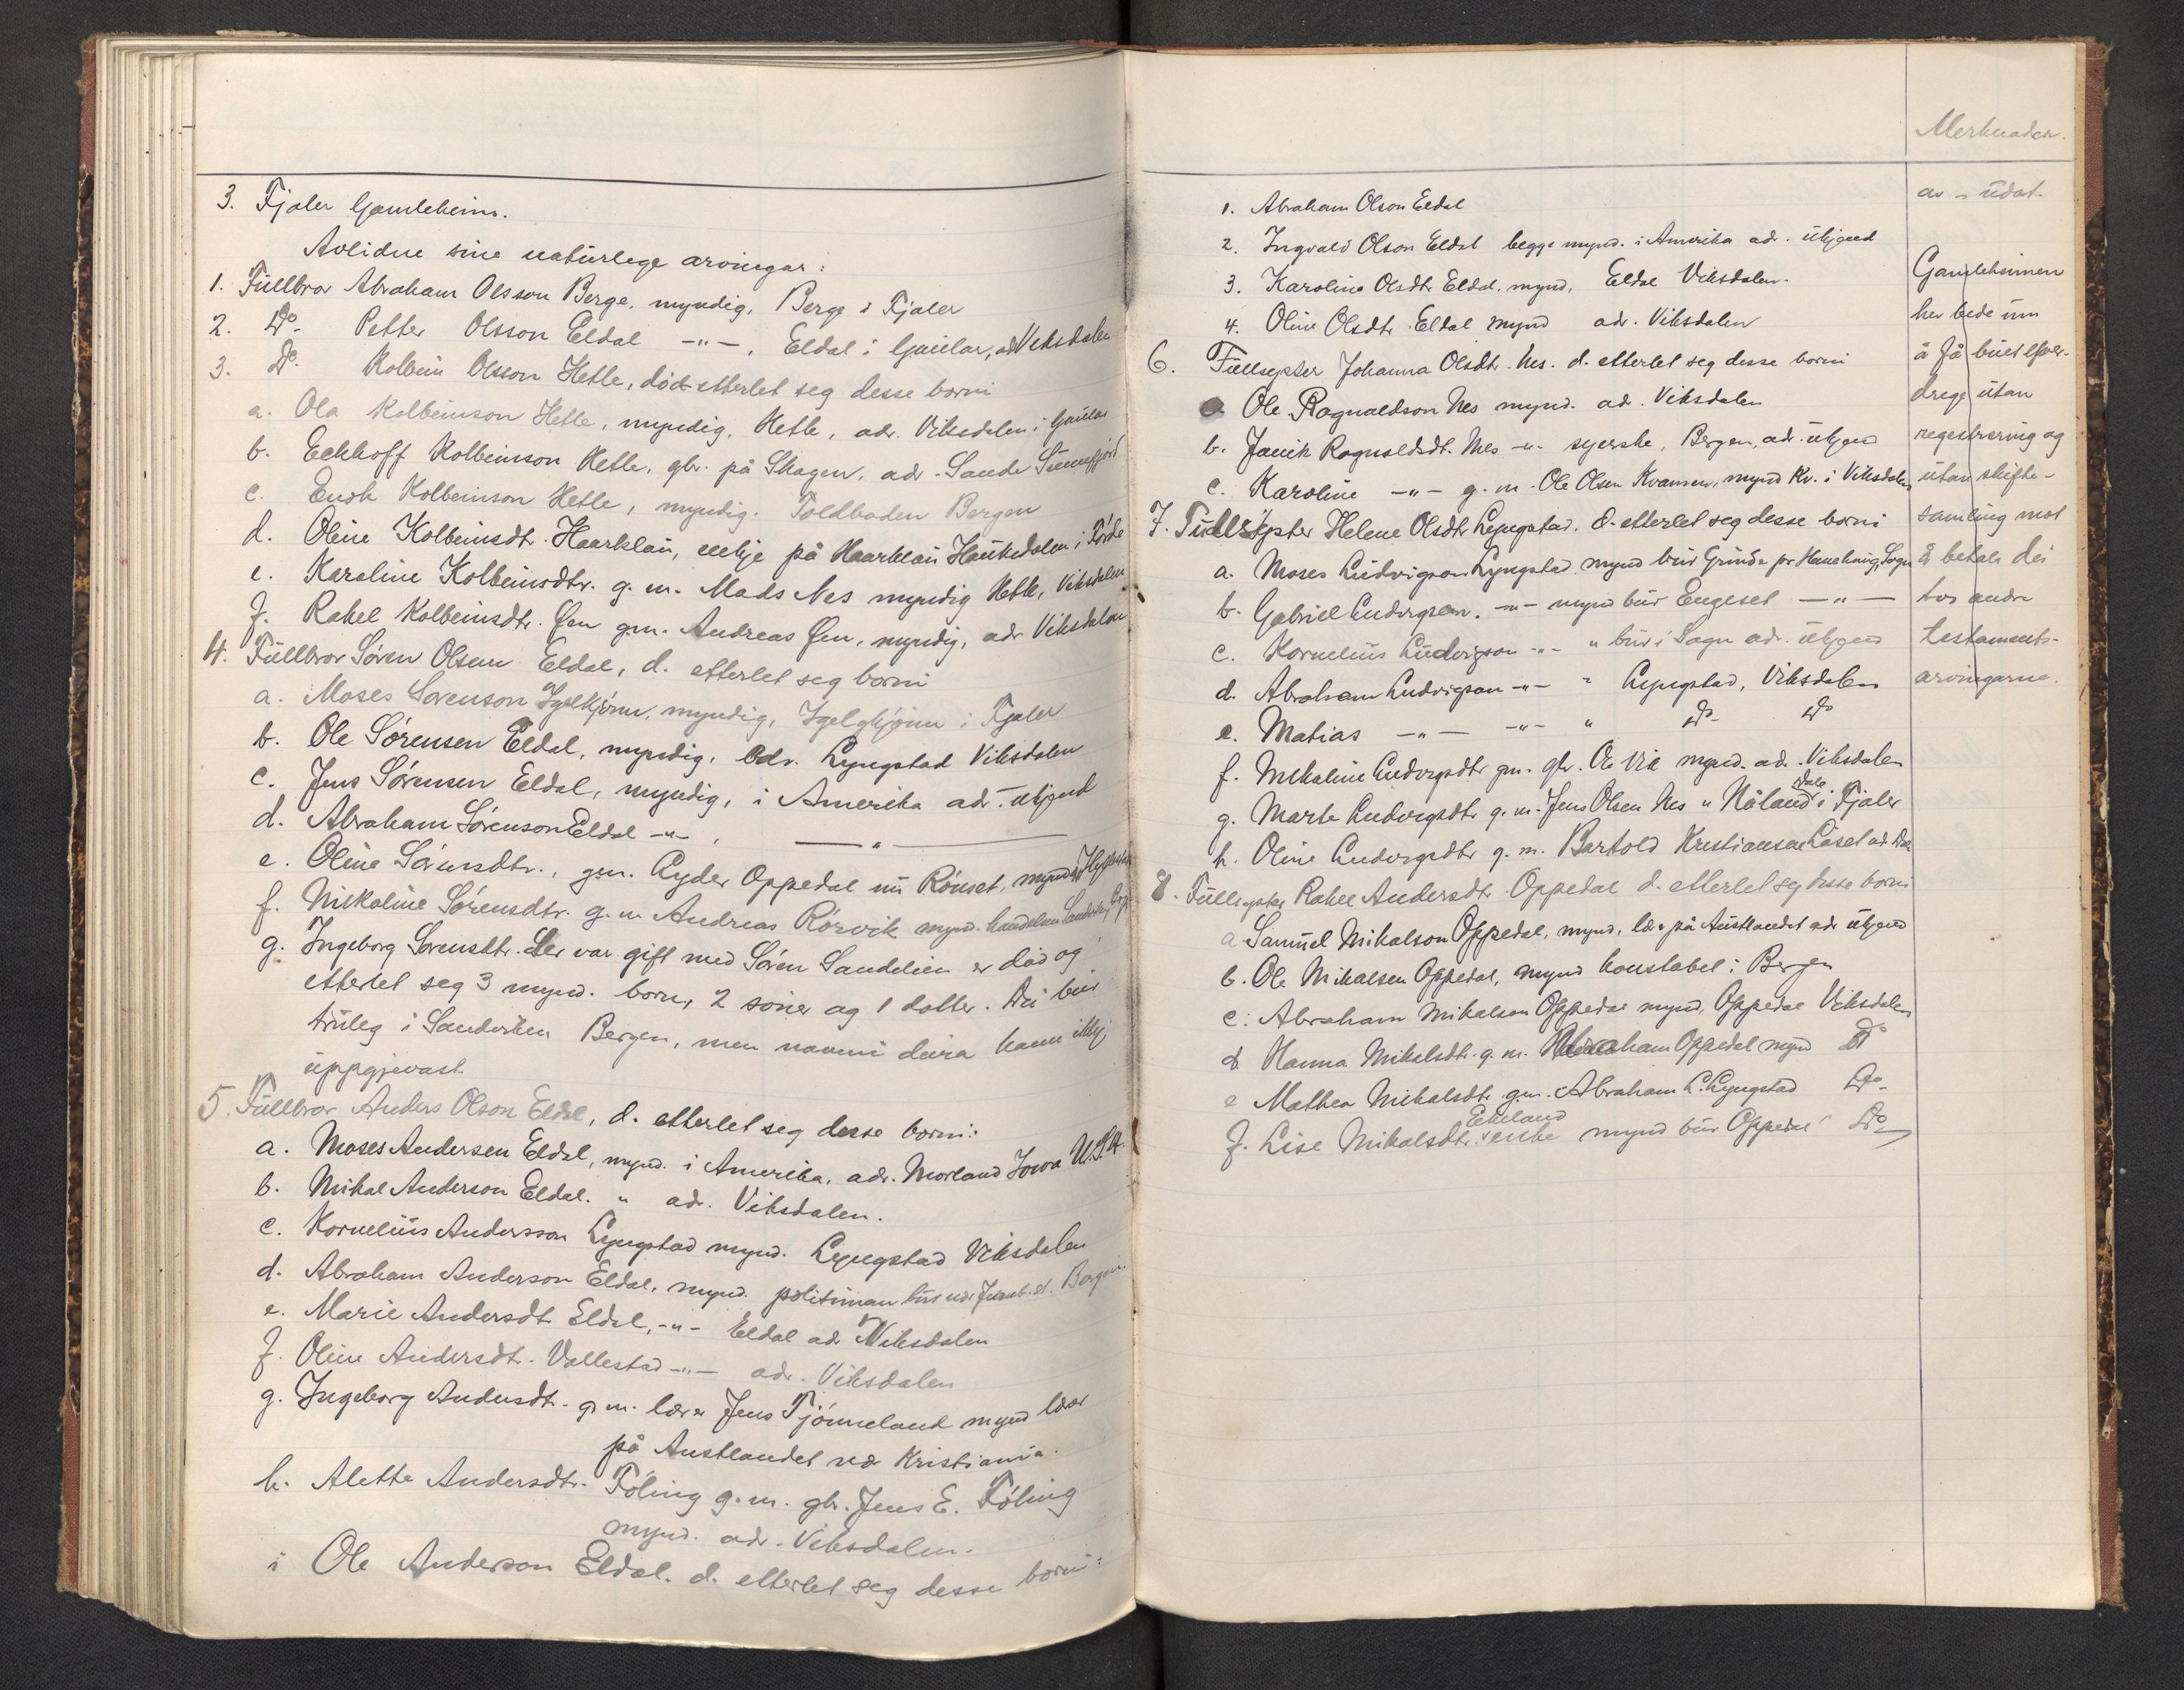 3. Fjaler Gamleheim.
Avlidne sine naturlege arvingar:
1. Fullbror Abraham Olsson Berge, myndig, Berge i Fjaler
2. Do Petter Olsson Eldal -"-, Eldal i Gaular, ad Viksdalen
3. Do Kolbein Olsson Hetle, död etterlet seg desse borni
a. Ola Kolbeinson Hetle, myndig, Hetle, adr. Viksdalen i Gaular
b. Eckhoff Kolbeinson Hetle, gbr. på Skagen, adr. Sande Sunnfjord
c. Enok Kolbeinson Hetle, myndig. Toldboden Bergen
d. Oline Kolbeinsdtr. Haarklau, enkje på Haarklau Haukedalen i Förde
e. Karoline Kolbeinsdtr. g. m. Mads Nes myndig Hetle, Viksdalen
f. Rakel Kolbeinsdtr. Øen gm. Andreas Øen, myndig, adr Viksdalen
4. Fullbror Sören Olsen Eldal, d. etterlet seg borni
a. Moses Sørenson Igelkjønn, myndig, Igelkjønn i Fjaler
b. Ole Sörensen Eldal, myndig, adr. Lyngstad Viksdalen
c. Jens Sörensen Eldal, myndig, i Amerika adr. ukjend
d. Abraham Sörenson Eldal -"-, -"-
e. Oline Sörensdtr., gm. Ayder Oppedal nu Rönset, mynd. i Hyllestad
f. Nikoline Sörensdtr. g. m Andreas Rörvik mynd. handelsm. Sandviken Bergen
g. Ingeborg Sørensdtr. var gift med Sören Sandelien er död og
etterlet seg 3 mynd. born, 2 söner og 1 dotter. Dei bur
truleg i Sandviken Bergen, men namni deira kann ikkje
uppgjevast.
5. Fullbror Anders Olson Eldal, d. etterlet seg desse borni:
a. Moses Andersen Eldal, mynd. i Amerika, adr. Morland Iowa U.S.A.
b. Mikal Anderson Eldal. " adr. Viksdalen.
c. Kornelius Andersson Lyngstad mynd. Lyngstad Viksdalen
d. Abraham Anderson Eldal, mynd. politiman bur ved Jernb.st. Bergen.
e. Marie Andersdt Eldal, -"- Eldal ad Viksdalen
f. Oline Andersdt. Vallestad -"- adr. Viksdalen
g. Ingeborg Andersdt. g. m. lærer Jens Tjönneland mynd lærer
på Austlandet ved Kristiania.
h. Alette Andersdtr. Föling g. m. gbr. Jens E. Föling
mynd. adr. Viksdalen.
i Ole Anderson Eldal. d. etterlet seg desse borni:
1. Abraham Olson Eldal
2. Ingvald Olson Eldal begge mynd. i Amerika adr. ukjend
3. Karoline Olsdtr Eldal, mynd, Eldal Viksdalen.
4. Oline Olsdtr. Eldal mynd adr. Viksdalen
6. Fullsyster Johanna Olsdtr. Nes. d. etterlet seg desse borni
a Ole Ragnvaldson Nes mynd. ad. Viksdalen
b. Janik Ragnvaldsdt. Nes -"- syerske, Bergen, adr. ukjend
c. Karoline -"- g. m. Ole Olsen Kvamen, mynd Kv. i Viksdalen
7. Fullsyster Helene Olsdtr. Lyngstad. d. etterlet seg desse borni
a. Moses Ludvigson Lyngstad mynd bur Grinde pr Sogn
b. Gabriel Ludvigson. -"- mynd bur Engeset -"-
c. Kornelius Ludvigson -"- " bur i Sogn adr. ukjend
d. Abraham Ludvigson -"- " Lyngstad, Viksdalen
e. Matias -"- -"- " Do Do
f. Nikoline Ludvigsdtr gm. gbr. Ole Vik mynd. ad. Viksdalen
g. Marte Ludvigsdtr g. m. Jens Olsen Nes " Nåland Dale i Fjaler
h. Oline Ludvigsdtr g. m. Bartold Kristiansen Låset ad. Do
8. Fullsyster Rakel Andersdtr. Oppedal d. etterlet seg desse borni
a Samuel Mikalson Oppedal, mynd, på Austlandet adr ukjend
b. Ole Mikalsen Oppedal, mynd konstabel i Bergen
c. Abraham Mikalson Oppedal mynd, Oppedal Viksdalen
d Hanna Mikalsdtr. g. m. Abraham Oppedal mynd Do
e Mathea Mikalsdtr. g.m. Abraham L. Lyngstad Do
f. Lise Mikalsdtr. Eikeland enke mynd bur Oppedal Do
Merknader.
av - udat.
Gamleheimen
hev bede um
å få buet yver-
drege utan
registrering og
utan skifte-
samling mot
å betale dei
tvo andre
testaments-
arvingarne.